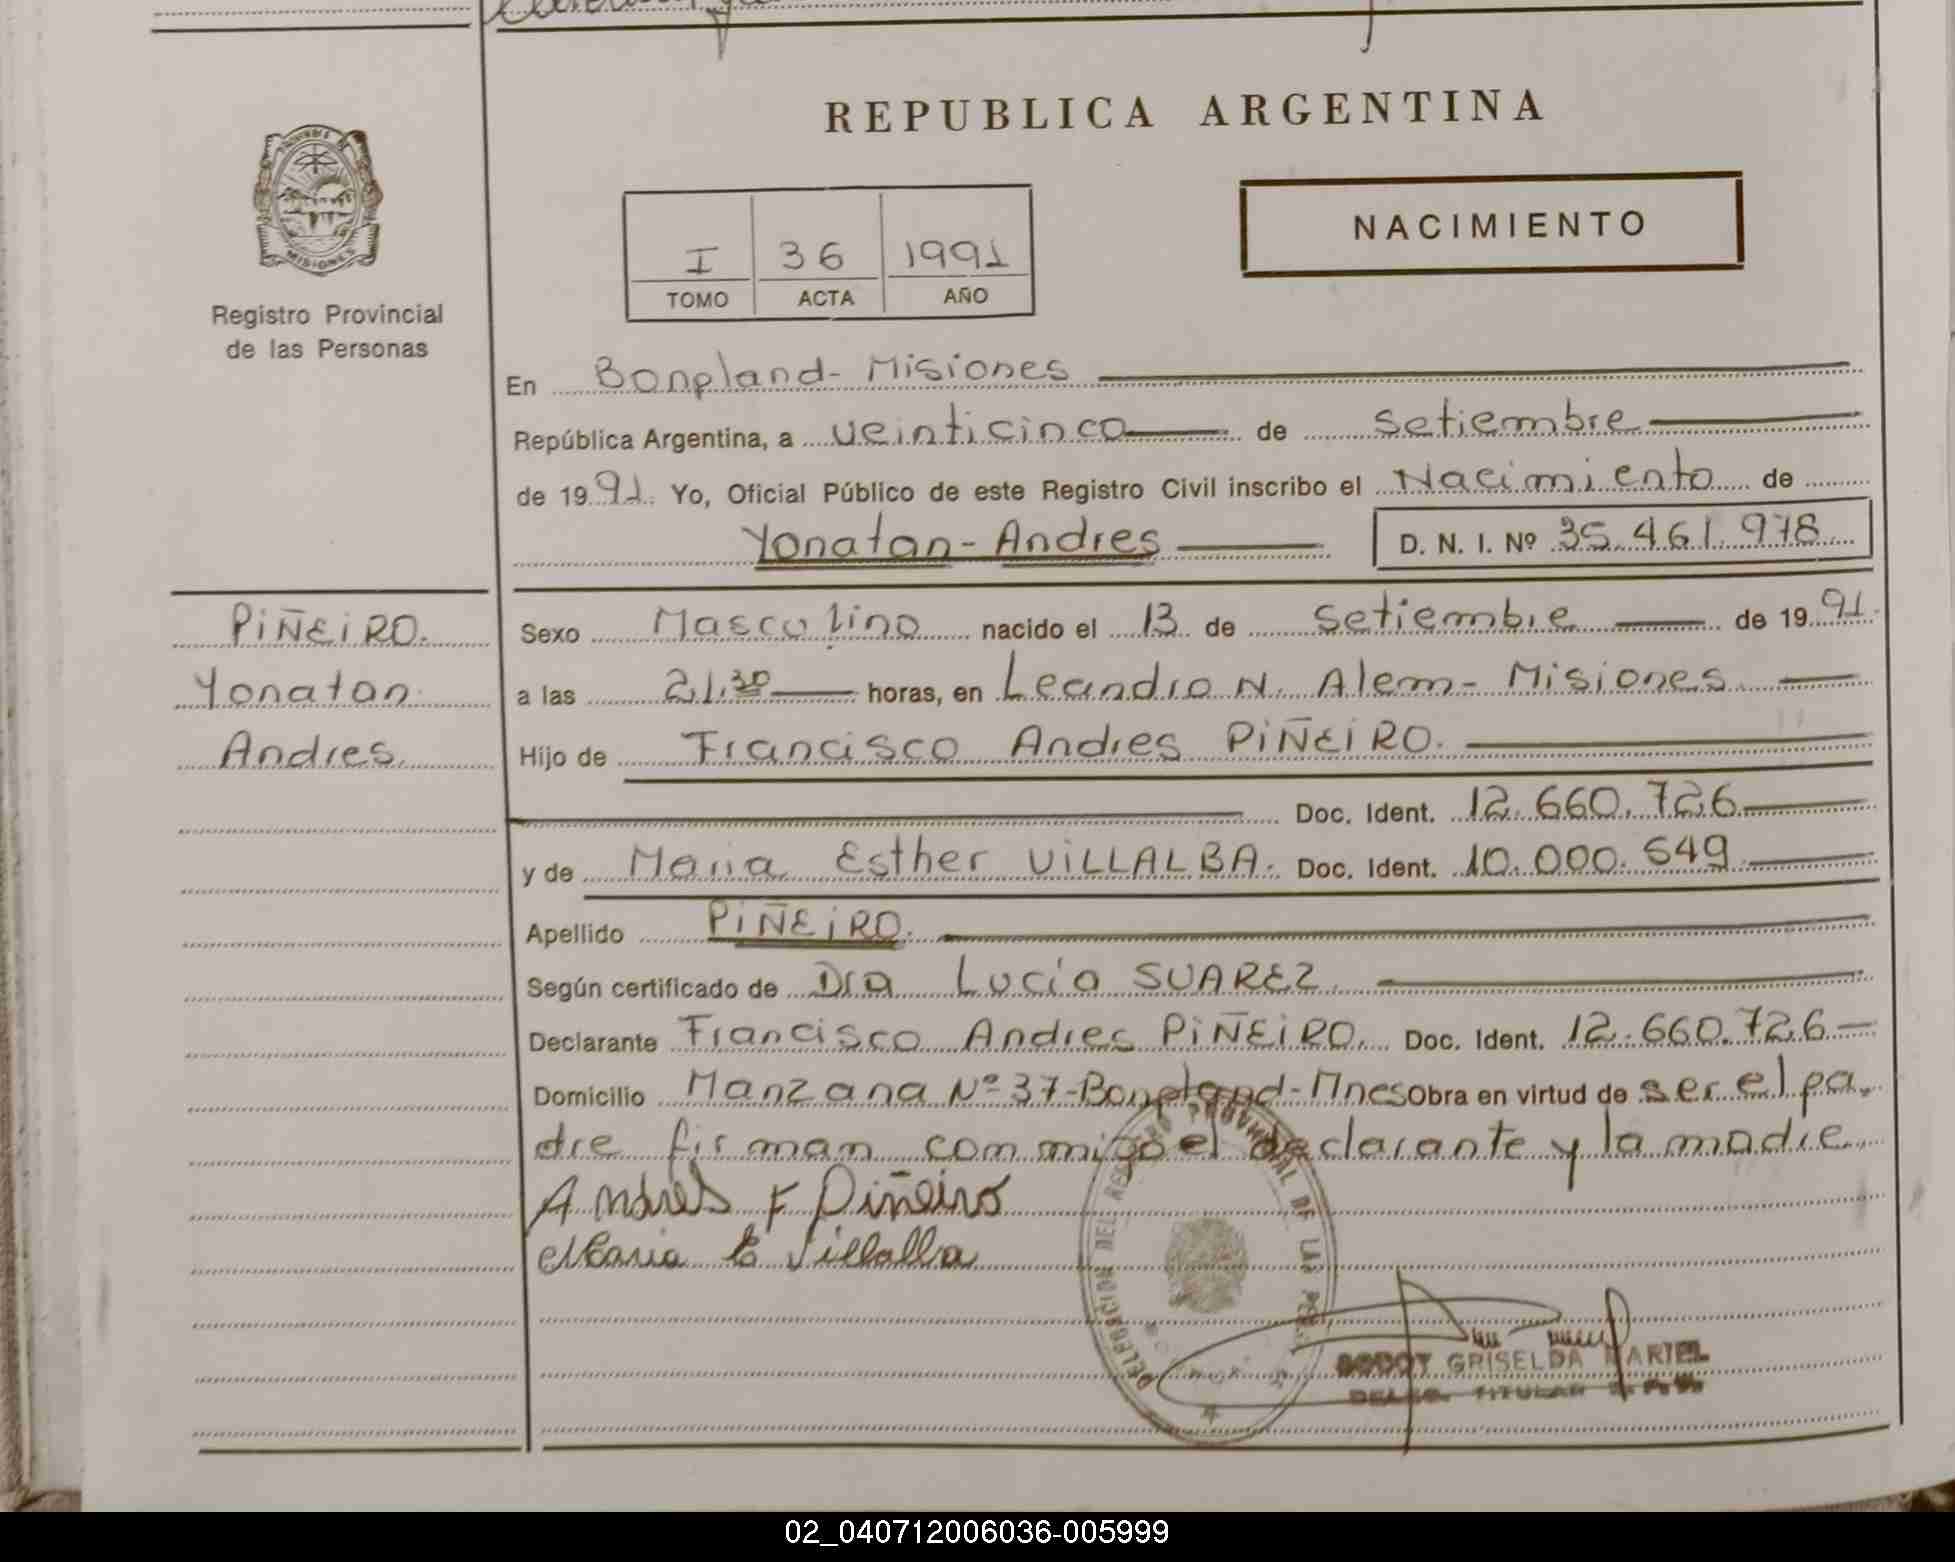 REPUBLICA ARGENTINA
MISIONES
Registro Provincial
de las Personas
NACIMIENTO
I 36 1991
TOMO ACTA AÑO
En Bonpland - Misiones
República Argentina, a veinticinco de setiembre
de 1991. Yo, Oficial Público de este Registro Civil inscribo el Nacimiento de
Yonatan - Andres D. N. I. Nº 35.461.978
PIÑEIRO.
Yonatan
Andres
Sexo Masculino nacido el 13 de setiembre de 1991.
a las 21.30 horas, en Leandro N. Alem - Misiones
Hijo de Francisco Andres PIÑEIRO.
Doc. Ident. 12.660.726
y de Maria Esther VILLALBA. Doc. Ident. 10.000.549
Apellido PIÑEIRO.
Según certificado de Dra Lucia SUAREZ
Declarante Francisco Andres PIÑEIRO. Doc. Ident. 12.660.726
Domicilio Manzana Nº 37 - Bonpland - Mnes Obra en virtud de ser el pa-
dre firman conmigo el declarante y la madre
Andres F Piñeiro
Maria E Villalba
DELEGACION DEL REGISTRO PROVINCIAL DE LAS
GODOY GRISELDA MARIEL
TITULAR
02_040712006036-005999